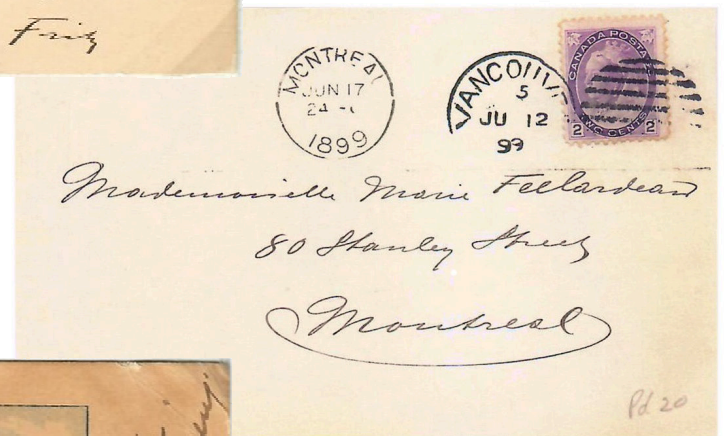 Fritz
MONTREAL
JUN 17
24
1899
VANCOUVE
5
JU 12
99
CANADA POSTA
2 TWO CENTS 2
Mademoiselle Marie
80 Stanley Street
Montreal
Pd 20